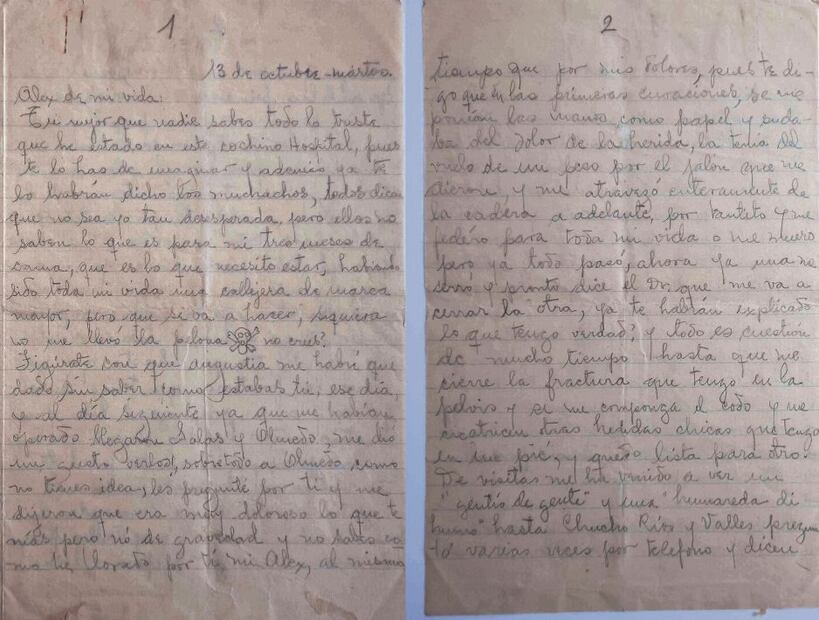 1
13 de octubre - martes.
Alex de mi vida:
Tú mejor que nadie sabes todo lo triste
que he estado en este cochino Hospital, pues
te lo has de imaginar y además ya te
lo habrán dicho los muchachos, todos dicen
que no sea yo tan desesperada, pero ellos no
saben lo que es para mi tres meses de
cama, que es lo que necesito estar, habiendo
sido toda mi vida una callejera de marca
mayor, pero que se va a hacer, siquiera
no me llevó la pelona no crees?
Figúrate con que angustia me habré que
dado sin saber como estabas tu, ese día,
y al día siguiente ya que me habían
operado llegaron Salas y Olmedo, me dió
un gusto verlos!, sobretodo a Olmedo, como
no tienes idea, les pregunté por ti y me
dijeron que era muy doloroso lo que te
pero nó de gravedad y no sabes co
mo he llorado por ti mi Alex, al mismo
2
tiempo que por mis dolores, pues te di-
go que en las primeras curaciones, se me
ponían las manos como papel y suda-
ba del dolor de la herida,
me
dieron y me atravezó enteramente de
la cadera a adelante, por tantito y me
para toda mi vida o me muero
pero ya todo pasó, ahora ya una me
cerró y pronto dice el Dr. que me va a
cerrar la otra, ya te habrán explicado
lo que tengo verdad? y todo es cuestión
de mucho tiempo hasta que me
cierre la fractura que tengo en la
pelvis y se me componga el codo y me
cicatricen otras heridas chicas que tengo
en un pié, y quedo lista para otro.
De visitas me ha venido a ver un
"gentío de gente" y una "humareda di
humo" hasta Chucho Ríos y Valles pregun
tó varias veces por telefono y dicen